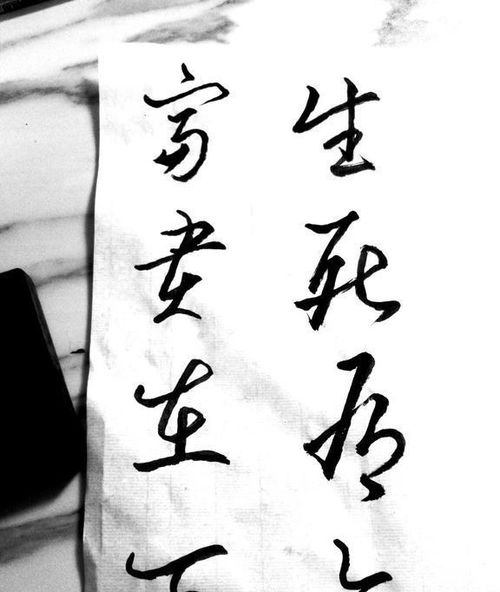 生死有
富贵在